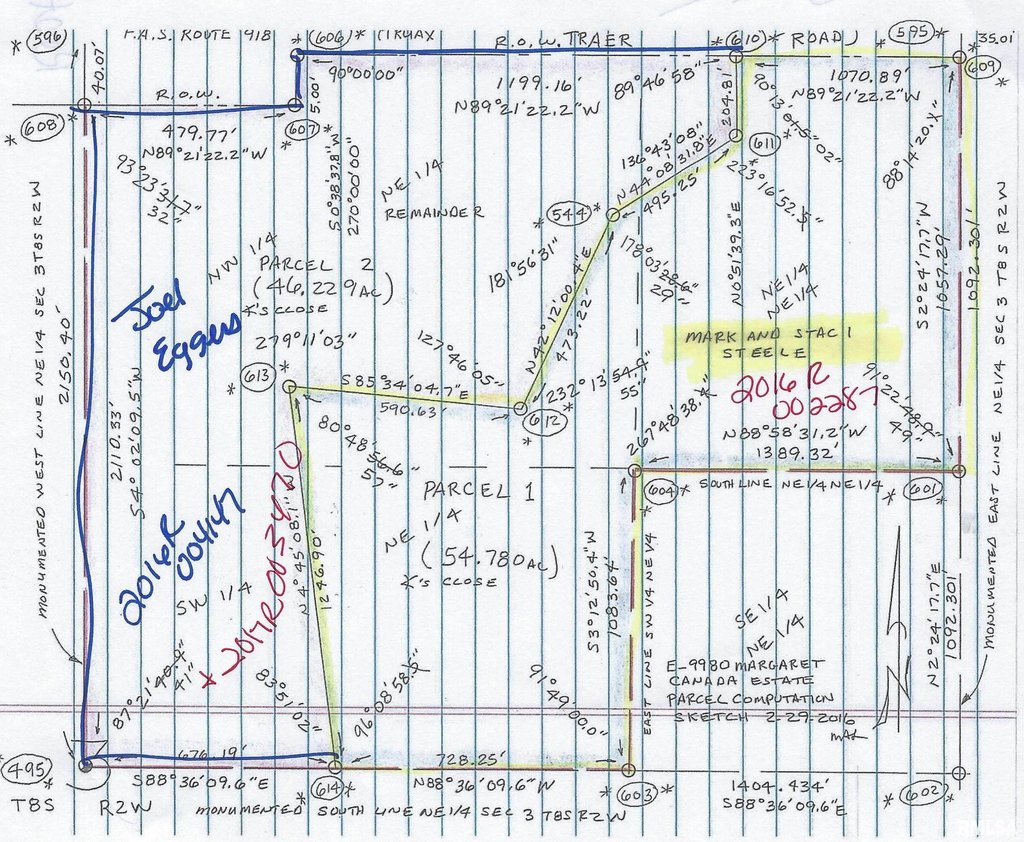 * 596
F.A.S. ROUTE 918
606 *
R.O.W. TRAER
* 610 *
ROAD
* 595
35.01'
40.07'
R.O.W.
90°00'00"
1199.16'
N89°21'22.2"W
89°46'58"
1070.89'
N89°21'22.2"W
609
*
* 608
5.00'
607
*
479.77'
N89°21'22.2"W
204.81'
611
*
88°14'20.
93°23'
32"
S0°38'37.8"W
270°00'00"
NE 1/4
REMAINDER
136°43'08"
N44°08'31.8"E
495.25'
* 544
223°16'52.5"
NW 1/4
PARCEL 2
(46.229AC)
∡'s CLOSE
181°56'31"
178°03'
29"
N0°51'39.3"E
NE 1/4
NE 1/4
S2°24'17.7"W
1057.29'
1092.301'
MONUMENTED EAST LINE NE 1/4 SEC 3 T8S R2W
MONUMENTED WEST LINE NE 1/4 SEC 3 T8S R2W
2150.40'
Joel
Eggers
N42°12'00.4"E
473.22'
MARK AND STACI
STEELE
2016R
002287
279°11'03"
* 613
*
127°46'05"
S85°34'04.7"E
590.63'
232°13'
55"
612
*
91°22'
49"
N88°58'31.2"W
1389.32'
267°48'38.
2110.33'
S4°02'09.5"W
80°48'
57"
604 *
SOUTH LINE NE 1/4 NE 1/4
601
*
PARCEL 1
NE 1/4
(54.780AC)
∡'s CLOSE
2016R
004147
N4°45'08.1"W
1246.90'
SW 1/4
S3°12'50.4"W
1083.64'
EAST LINE SW 1/4 NE 1/4
SE 1/4
NE 1/4
N2°24'17.7"E
1092.301'
E-9980 MARGARET
CANADA ESTATE
PARCEL COMPUTATION
SKETCH 2-29-2016
MAK
87°21'
41"
83°51'02"
96°08'58.
91°49'00.0"
495
*
676.19'
S88°36'09.6"E
* 614 *
728.25'
N88°36'09.6"W
* 603 *
1404.434'
S88°36'09.6"E
* 602 *
T8S
R2W
MONUMENTED SOUTH LINE NE 1/4 SEC 3 T8S R2W